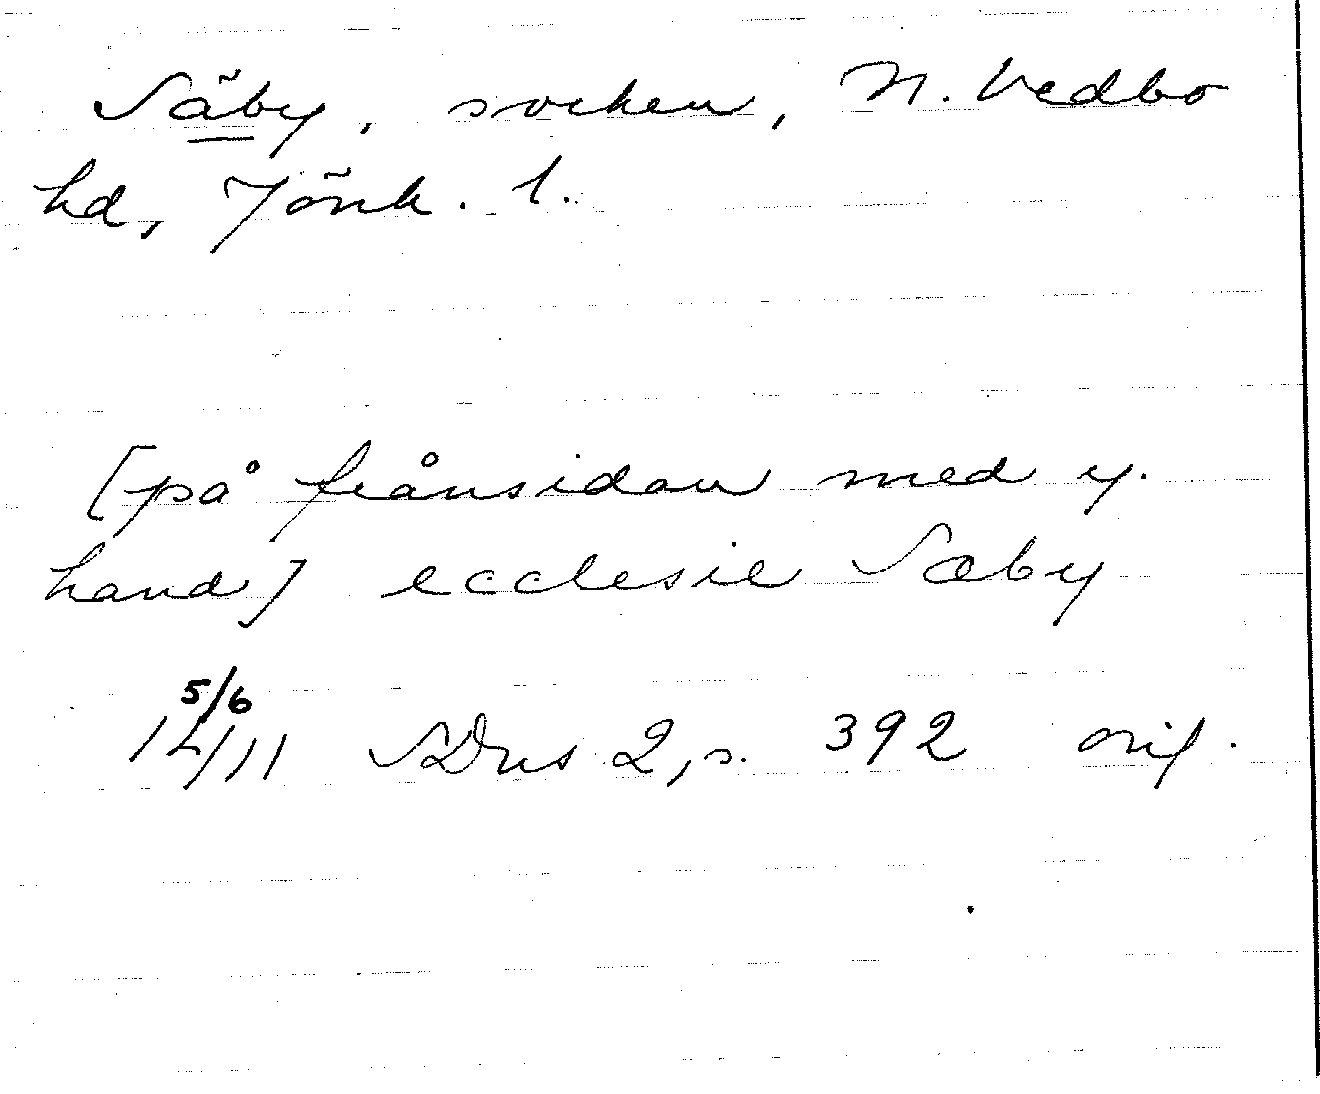 Säby, socken, N. Vedbo
hd, Jönk. l.
[på frånsidan med y.
hand] ecclesie Sæby
5/6
1411 SDns 2, s. 392 orig.